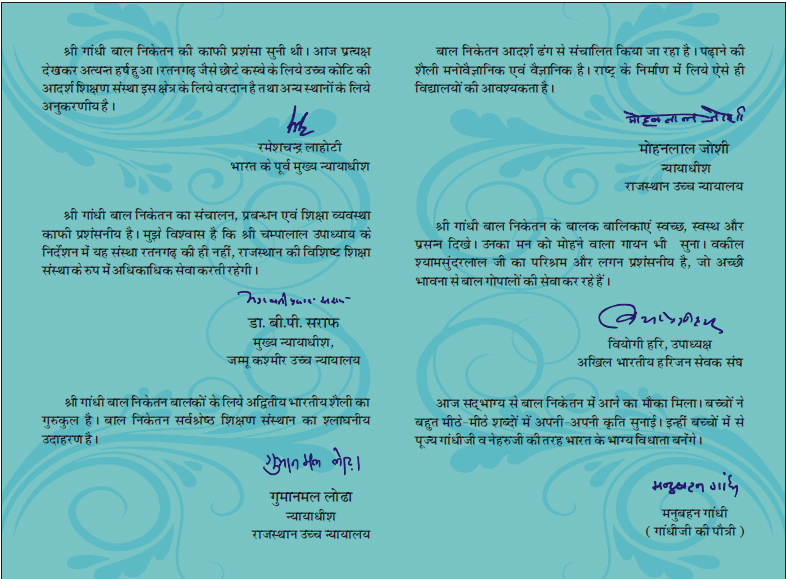 श्री गांधी बाल निकेतन की काफी प्रशंसा सुनी थी। आज प्रत्यक्ष
देखकर अत्यन्त हर्ष हुआ। रतनगढ़ जैसे छोटे कस्बे के लिये उच्च कोटि की
आदर्श शिक्षण संस्था इस क्षेत्र के लिये वरदान है तथा अन्य स्थानों के लिये
अनुकरणीय है।
रमेशचन्द्र लाहोटी
भारत के पूर्व मुख्य न्यायाधीश
श्री गांधी बाल निकेतन का संचालन, प्रबन्धन एवं शिक्षा व्यवस्था
काफी प्रशंसनीय है। मुझे विश्वास है कि श्री चम्पालाल उपाध्याय के
निर्देशन में यह संस्था रतनगढ़ की ही नहीं, राजस्थान की विशिष्ट शिक्षा
संस्था के रुप में अधिकाधिक सेवा करती रहेगी।
डा. बी.पी. सराफ
मुख्य न्यायाधीश,
जम्मू कश्मीर उच्च न्यायालय
श्री गांधी बाल निकेतन बालकों के लिए अद्वितीय भारतीय शैली का
गुरुकुल है। बाल निकेतन सर्वश्रेष्ठ शिक्षण संस्थान का श्लाघनीय
उदाहरण है।
गुमानमल लोढा
न्यायाधीश
राजस्थान उच्च न्यायालय
बाल निकेतन आदर्श ढंग से संचालित किया जा रहा है। पढ़ाने की
शैली मनोवैज्ञानिक एवं वैज्ञानिक है। राष्ट्र के निर्माण में लिये ऐसे ही
विद्यालयों की आवश्यकता है।
मोहनलाल जोशी
मोहनलाल जोशी
न्यायाधीश
राजस्थान उच्च न्यायालय
श्री गांधी बाल निकेतन के बालक बालिकाएं स्वच्छ, स्वस्थ और
प्रसन्न दिखे। उनका मन को मोहने वाला गायन भी सुना। वकील
श्यामसुंदरलाल जी का परिश्रम और लगन प्रशंसनीय है, जो अच्छी
भावना से बाल गोपालों की सेवा कर रहे हैं।
वियोगी हरि, उपाध्यक्ष
अखिल भारतीय हरिजन सेवक संघ
आज सद्भाग्य से बाल निकेतन में आने का मौका मिला। बच्चों ने
बहुत मीठे-मीठे शब्दों में अपनी-अपनी कृति सुनाई। इन्हीं बच्चों में से
पूज्य गांधीजी व नेहरुजी की तरह भारत के भाग्य विधाता बनेंगे।
मनुबहन गांधी
मनुबहन गांधी
( गांधीजी की पौत्री )